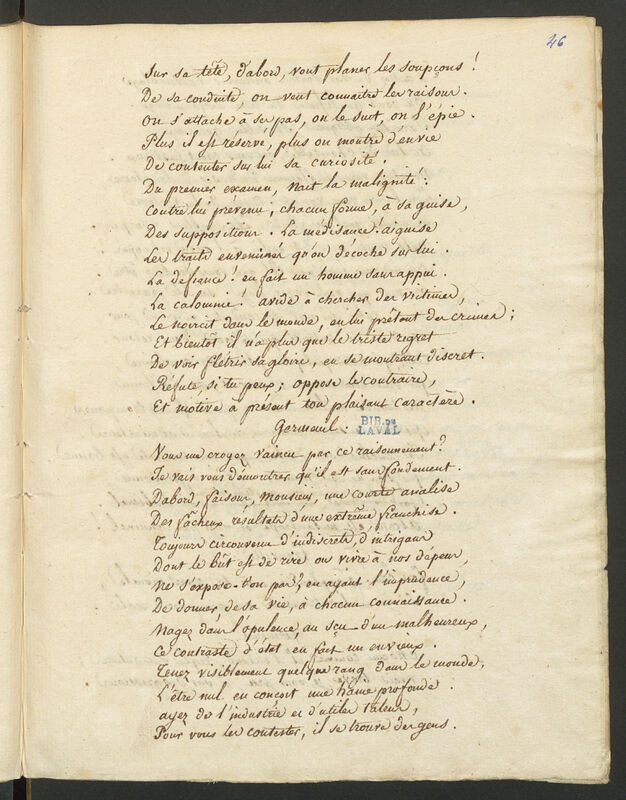 46
Sur sa tête, d'abord, vont planer les soupçons !
De sa conduite, on veut connaitre les raisons.
On s'attache à ses pas, on le suit, on l'épie.
Plus il est réservé, plus on montre d'envie
De contenter sur lui sa curiosité.
Du premier examen, nait la malignité :
Contre lui prévenu, chacun forme, à sa guise,
Des suppositions. La médisance ! aiguise
Les traits envenimés qu'on décoche sur lui.
La défiance ! en fait un homme sans appui.
La calomnie ! avide à chercher des victimes,
Le noircit dans le monde, en lui prêtant des crimes ;
Et bientôt il n'a plus que le triste regret
De voir flétrir sa gloire, en se montrant discret.
Réfute, si tu peux ; oppose le contraire,
Et motive à présent ton plaisant caractère.
Germeuil.
BIB. DE
LAVAL
Vous me croyez vaincu par ce raisonnement ?
Je vais vous démontrer qu'il est sans fondement.
Dabord, faisons, Monsieur, une courte analise
Des fâcheux résultats d'une extrême franchise.
Toujours circonvenu d'indiscrets, d'intrigans
Dont le bût est de rire ou vivre à nos dépens,
Ne s'expose-t'on pas, en ayant l'imprudence,
De donner de sa vie, à chacun connaissance.
Nagez dans l'opulence, au sçu d'un malheureux,
Ce contraste d'état en fait un envieux.
Tenez visiblement quelque rang dans le monde,
L'être nul en conçoit une haine profonde.
ayez de l'industrie et d'utiles talens,
Pour vous les contester, il se trouve des gens.